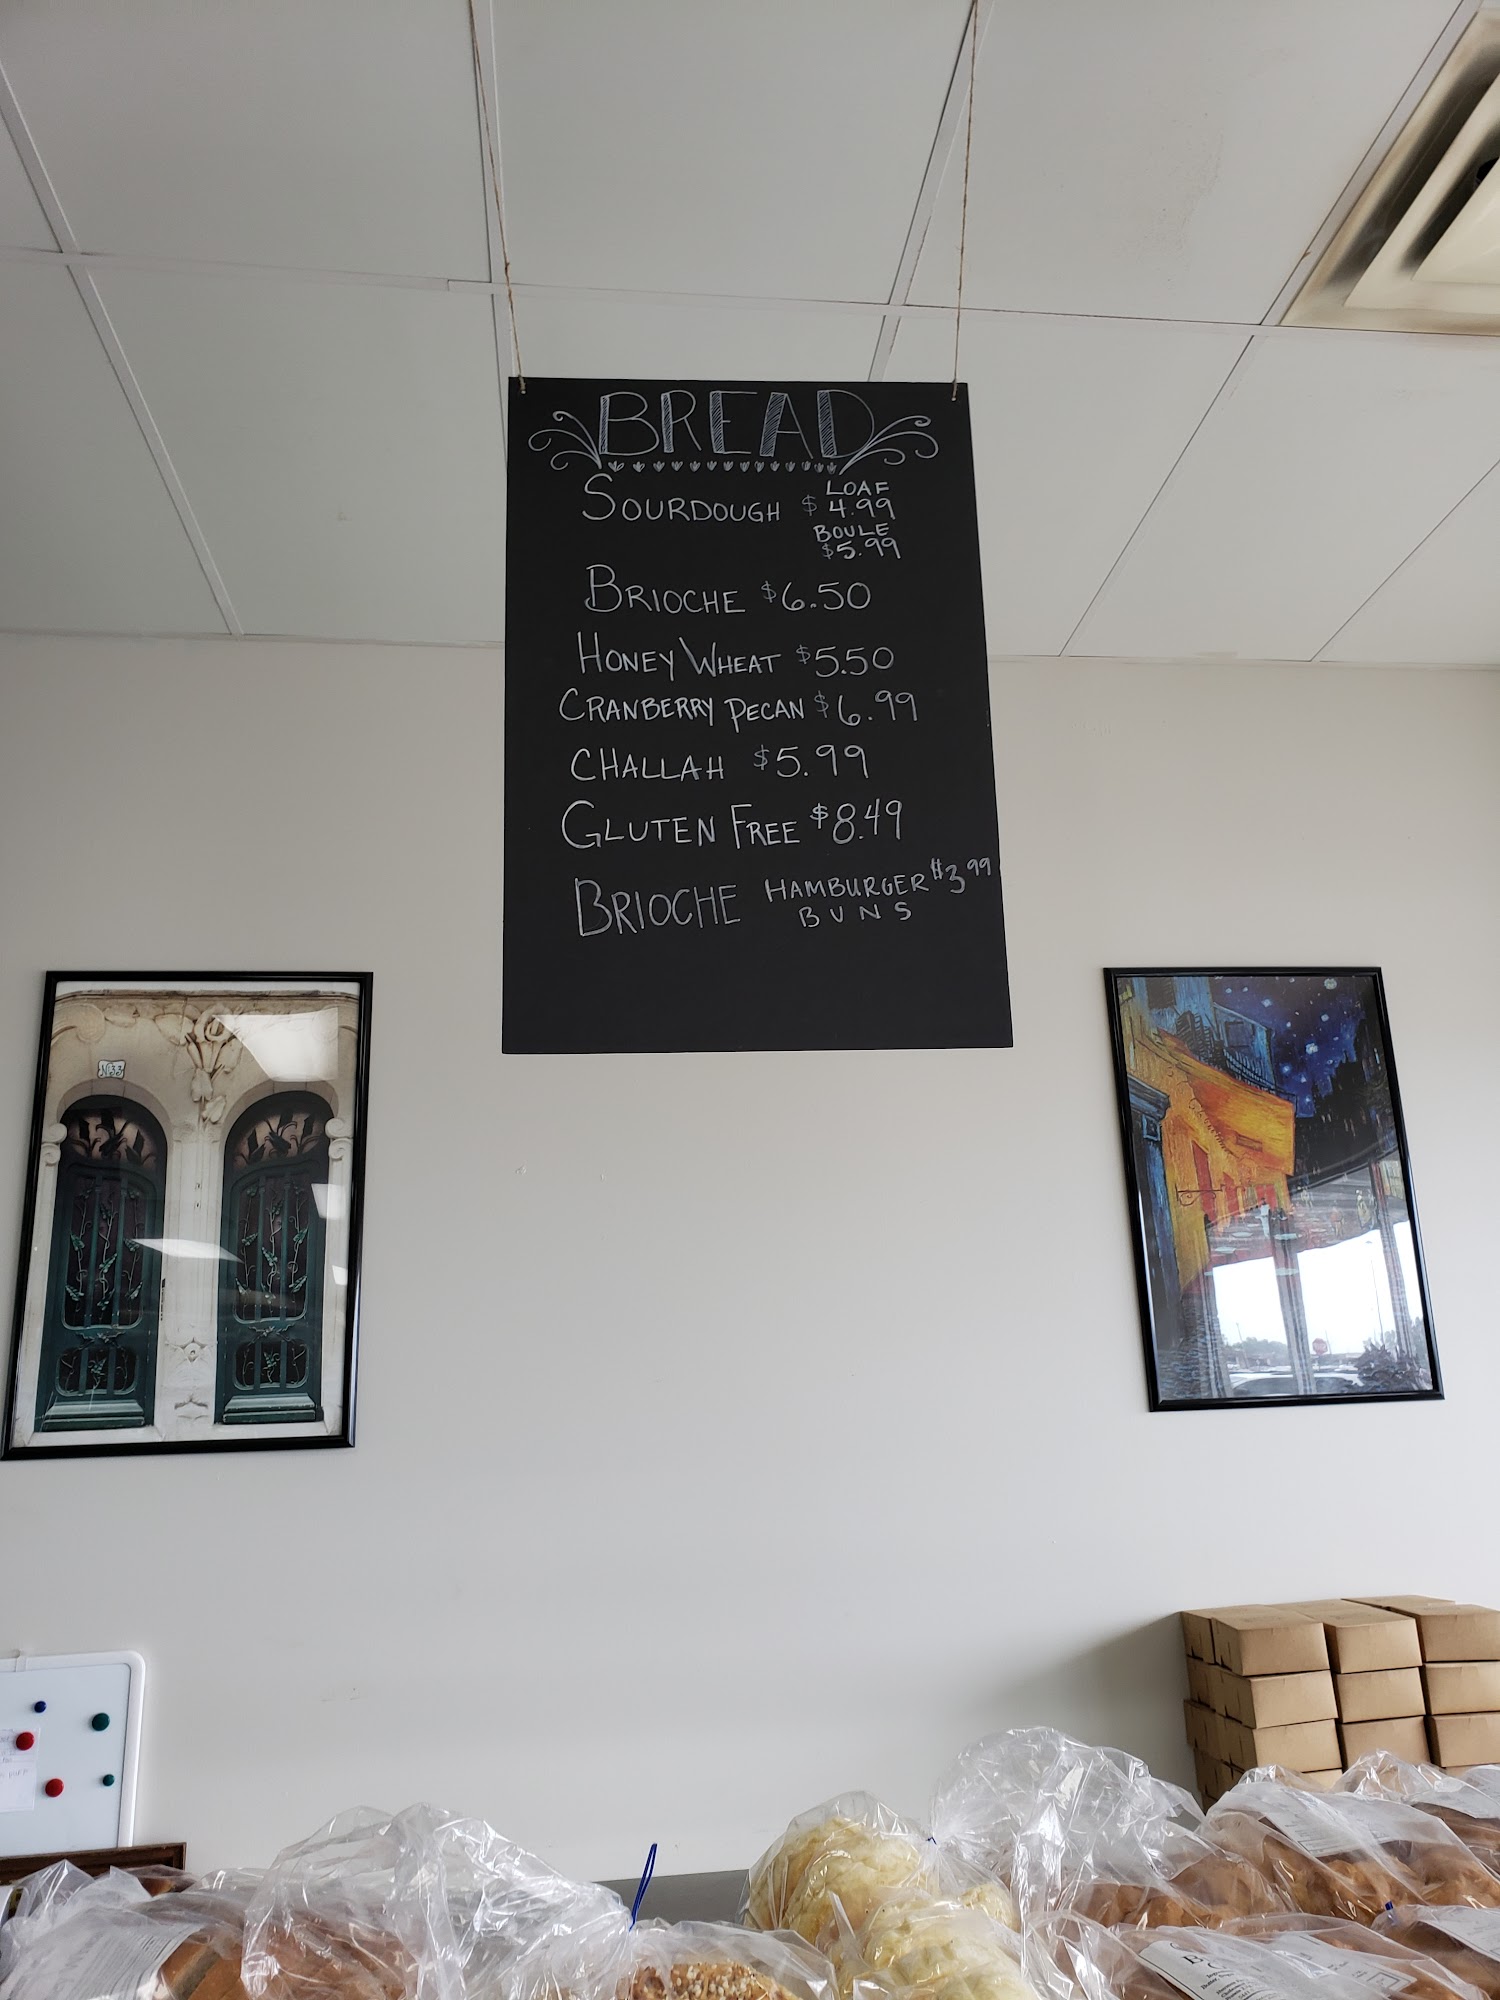 BREAD
SOURDOUGH $ LOAF 4.99
BOULE $5.99
BRIOCHE $6.50
HONEY WHEAT $5.50
CRANBERRY PECAN $6.99
CHALLAH $5.99
GLUTEN FREE $8.49
BRIOCHE HAMBURGER BUNS $3.99
No 33